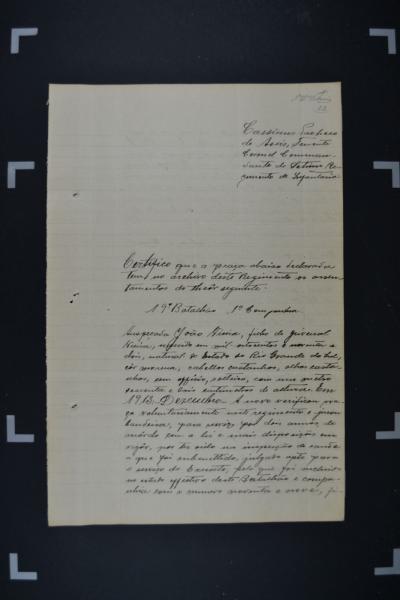 Cassiano Pacheco
de Assis, Tenente
Coronel Comman-
dante do Setimo Re-
gimento de Infantaria
Certifico que a praça abaixo declarada
tem no archivo deste Regimento os assen-
tamentos do theor seguinte:
19º Batalhão 1ª Companhia
Anspeçada João Vieira, filho de
Vieira, nascido em mil oitocentos e noventa e
dois, natural do Estado do Rio Grande do Sul,
côr morena, cabellos castanhos, olhos casta-
nhos, sem officio, solteiro, com um metro
e seis centimetros de altura. Em
1913. Dezembro. A nove verificou pra-
ça voluntariamente neste regimento e jurou
bandeira, para servir por dois annos, de
accôrdo com a lei e mais disposições em
vigôr, por ter sido na inspecção de saúde
a que foi submettido, julgado apto para
o serviço do Exercito, pelo que foi incluido
no estado effectivo deste Batalhão e compa-
nhia com o numero noventa e nove,